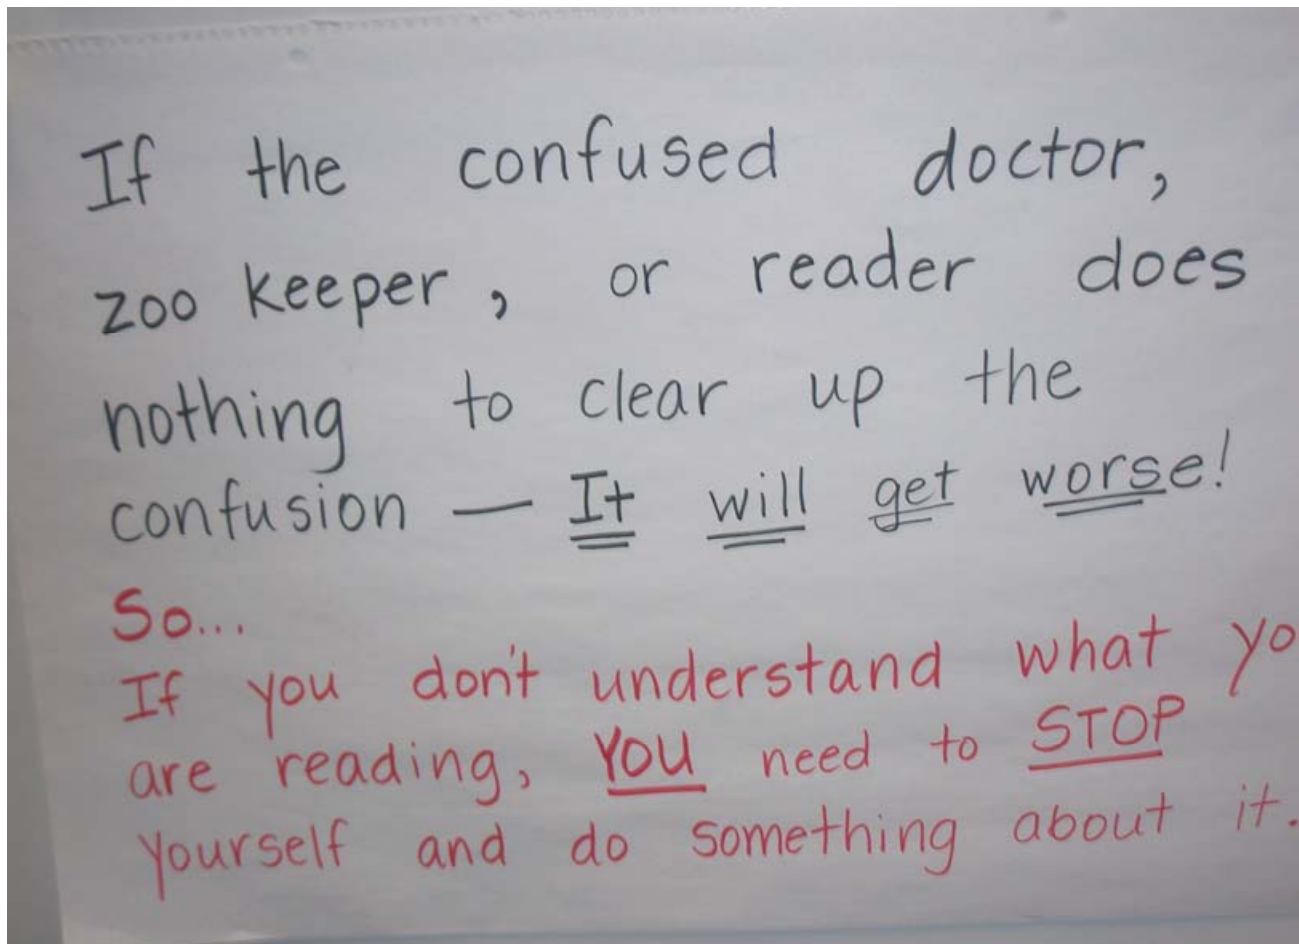 If the confused doctor,
zoo keeper, or reader does
nothing to clear up the
confusion — It will get worse!
So...
If you don't understand what yo
are reading, YOU need to STOP
yourself and do something about it.